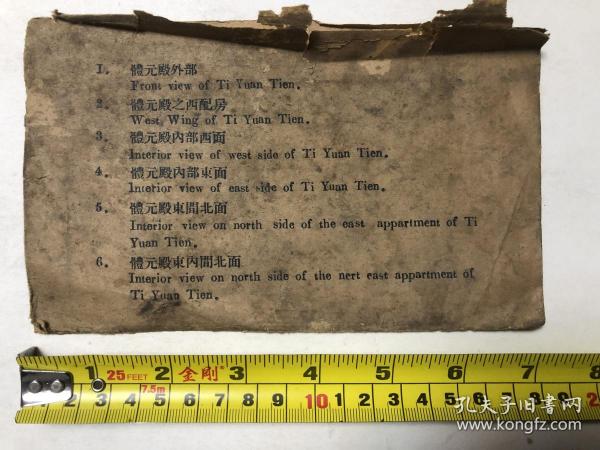 1. 體元殿外部
Front view of Ti Yuan Tien.
2. 體元殿之西配房
West Wing of Ti Yuan Tien.
3. 體元殿內部西面
Interior view of west side of Ti Yuan Tien.
4. 體元殿內部東面
Interior view of east side of Ti Yuan Tien.
5. 體元殿東間北面
Interior view on north side of the east appartment of Ti
Yuan Tien.
6. 體元殿東內間北面
Interior view on north side of the nert east appartment of
Ti Yuan Tien.
1 2 3 4 5 6 7 8
25 FEET 金剛
7.5m
1 2 3 4 5 6 7 8 9 10 11 12 13 14 15 16 17 18 19
孔夫子旧书网
www.kongfz.com